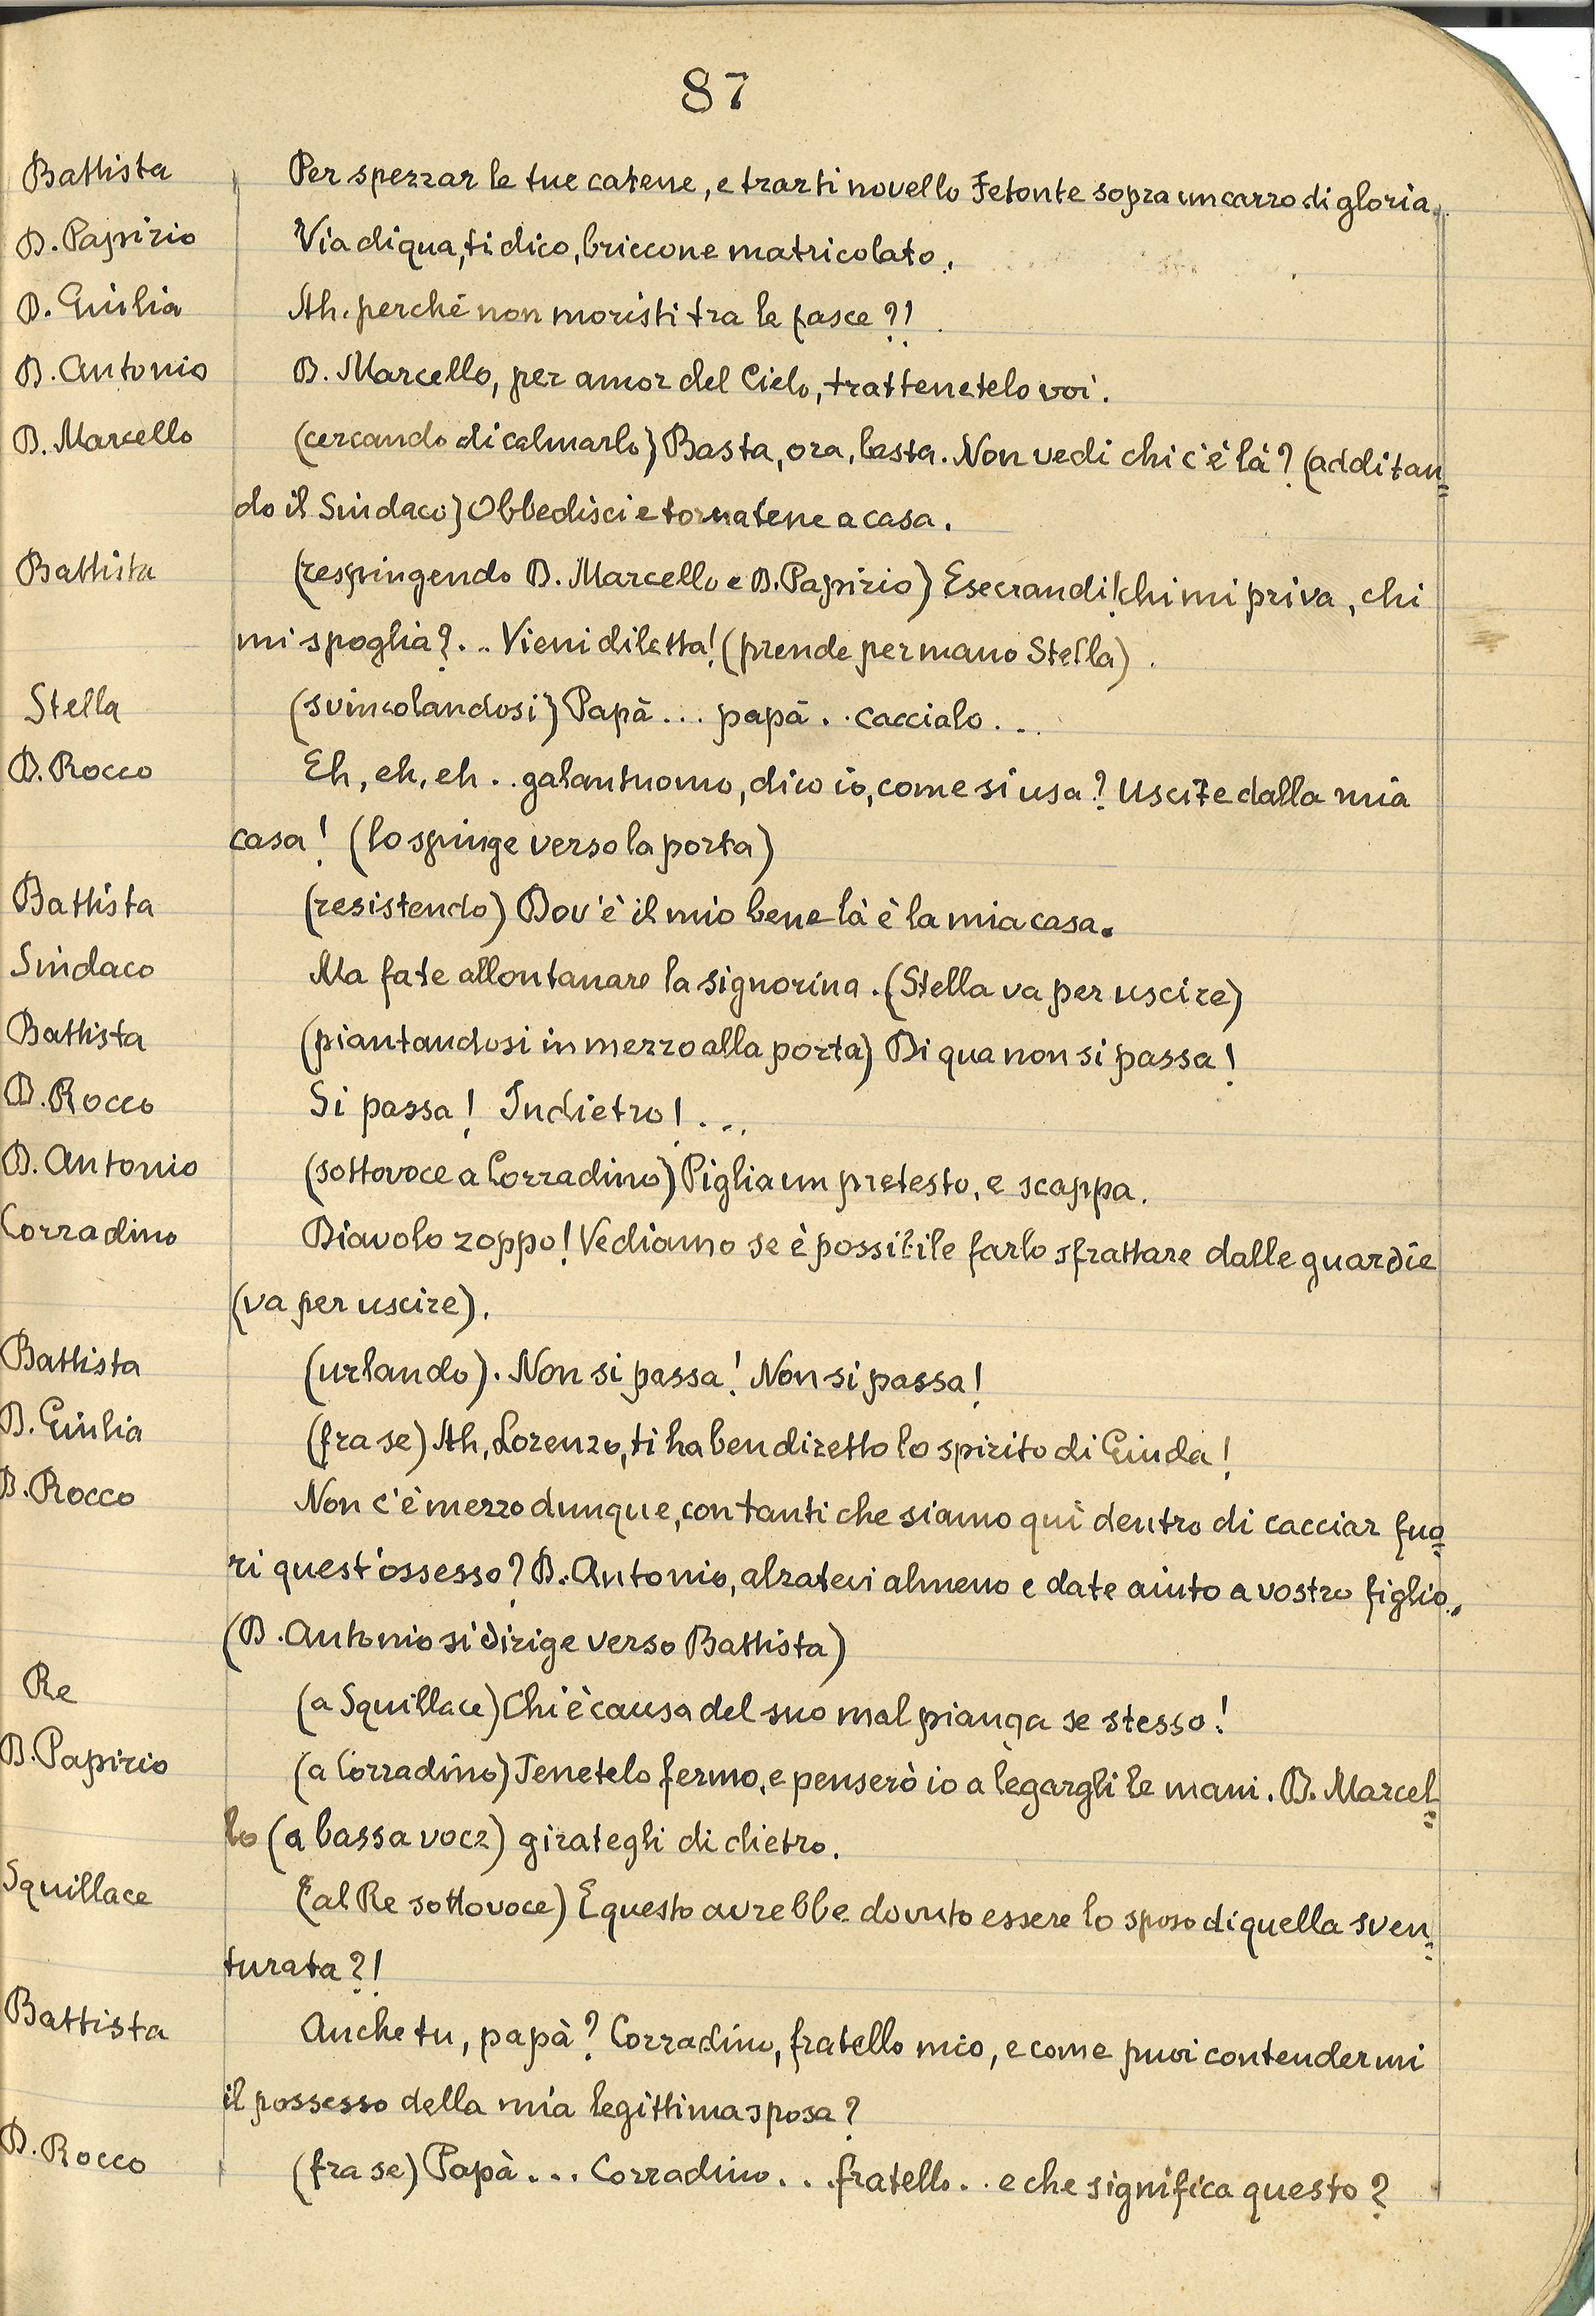 87
Battista Per spezzar le tue catene, e trarti novello Fetonte sopra un carro di gloria.
D. Papirio Via di qua, ti dico, briccone matricolato.
D. Giulia Ah, perché non moristi tra le fasce?!
D. Antonio D. Marcello, per amor del Cielo, trattenetelo voi.
D. Marcello (cercando di calmarlo) Basta, ora, basta. Non vedi chi c'è là? (additan=
do il Sindaco) Obbedisci e tornatene a casa.
Battista (respingendo D. Marcello e D. Papirio) Esecrandi! chi mi priva, chi
mi spoglia?... Vieni diletta! (prende per mano Stella).
Stella (svincolandosi) Papà... papà.. caccialo...
D. Rocco Eh, eh, eh.. galantuomo, dico io, come si usa? Uscite dalla mia
casa! (lo spinge verso la porta)
Battista (resistendo) Dov'è il mio bene là è la mia casa.
Sindaco Ma fate allontanare la signorina. (Stella va per uscire)
Battista (piantandosi in mezzo alla porta) Di qua non si passa!
D. Rocco Si passa! Indietro!...
D. Antonio (sottovoce a Corradino) Piglia un pretesto, e scappa.
Corradino Diavolo zoppo! Vediamo se è possibile farlo sfrattare dalle guardie
(va per uscire).
Battista (urlando). Non si passa! Non si passa!
D. Giulia (fra se) Ah, Lorenzo, ti ha ben diretto lo spirito di Giuda!
D. Rocco Non c'è mezzo dunque, con tanti che siamo quì dentro di cacciar fuo=
ri quest'ossesso? D. Antonio, alzatevi almeno e date aiuto a vostro figlio.
(D. Antonio si dirige verso Battista)
Re (a Squillace) Chi è causa del suo mal pianga se stesso!
D. Papirio (a Corradino) Tenetelo fermo, e penserò io a legargli le mani. D. Marcel=
lo (a bassa voce) girategli di dietro.
Squillace (al Re sottovoce) E questo avrebbe dovuto essere lo sposo di quella sven=
turata?!
Battista Anche tu, papà? Corradino, fratello mio, e come puoi contendermi
il possesso della mia legittima sposa?
D. Rocco (fra se) Papà... Corradino... fratello.. e che significa questo?